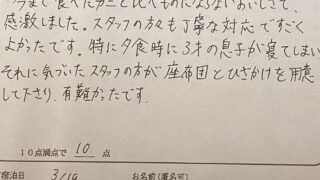 今まで食べたカニと比べものにならないおいしさで、
感激しました。スタッフの方々も丁寧な対応ですごく
よかったです。特に夕食時に3才の息子が寝てしまい
それに気づいたスタッフの方が座布団とひざかけを用意
して下さり、有難かったです。
10点満点で 10 点
宿泊日 3/19 お名前(匿名可)